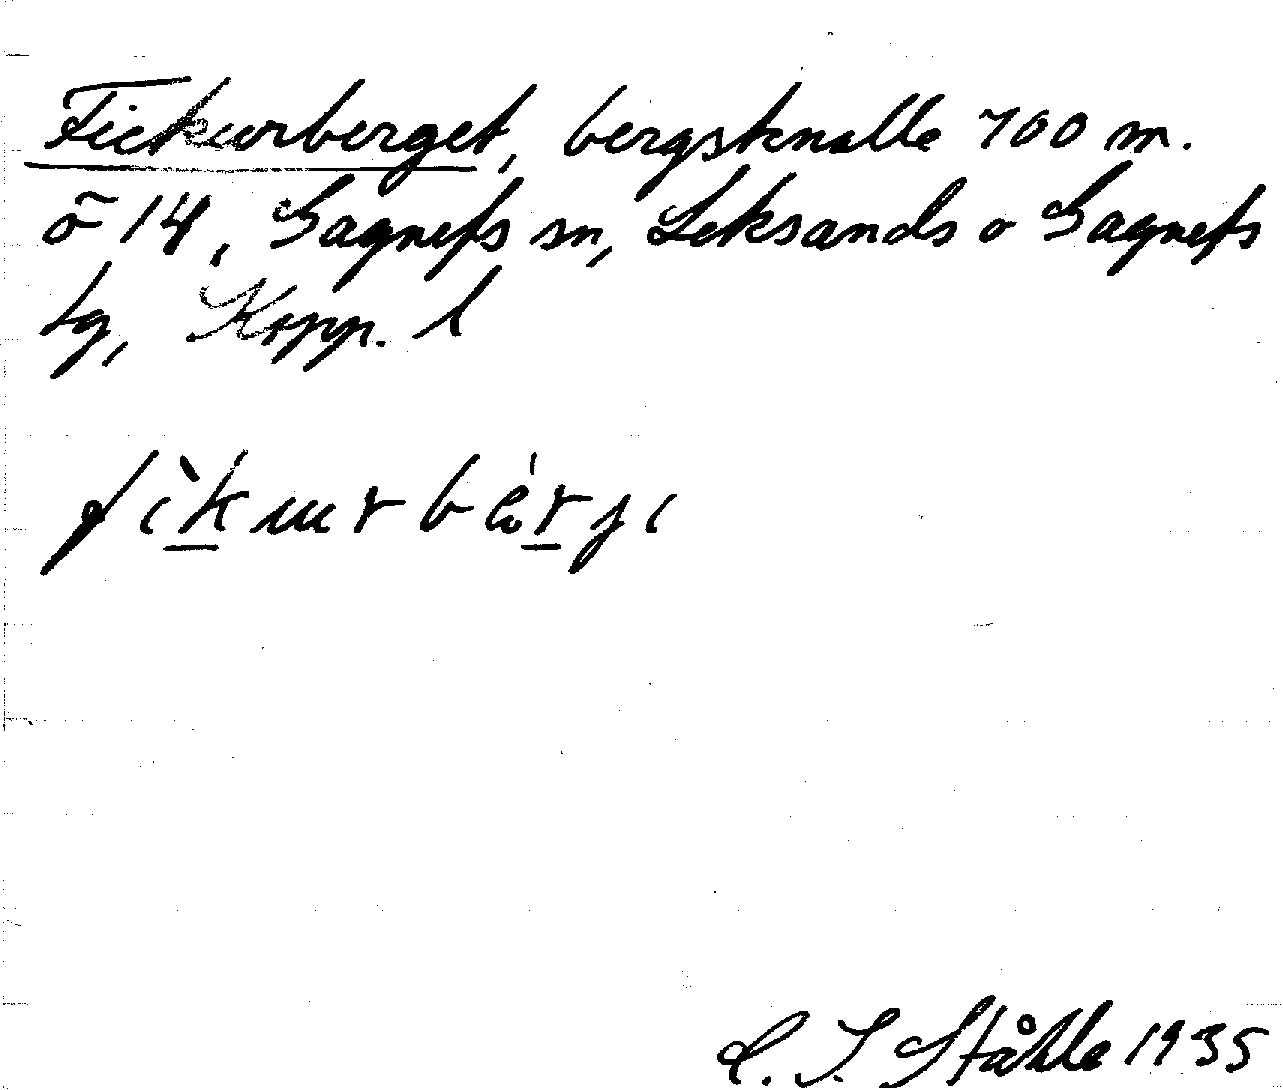 Fickurberget, bergsknalle 700 m.
ö 14, Gagnefs sn, Leksands o Gagnefs
tg, Kopp. l
fìkurbèrji
C. I. Ståhle 1935